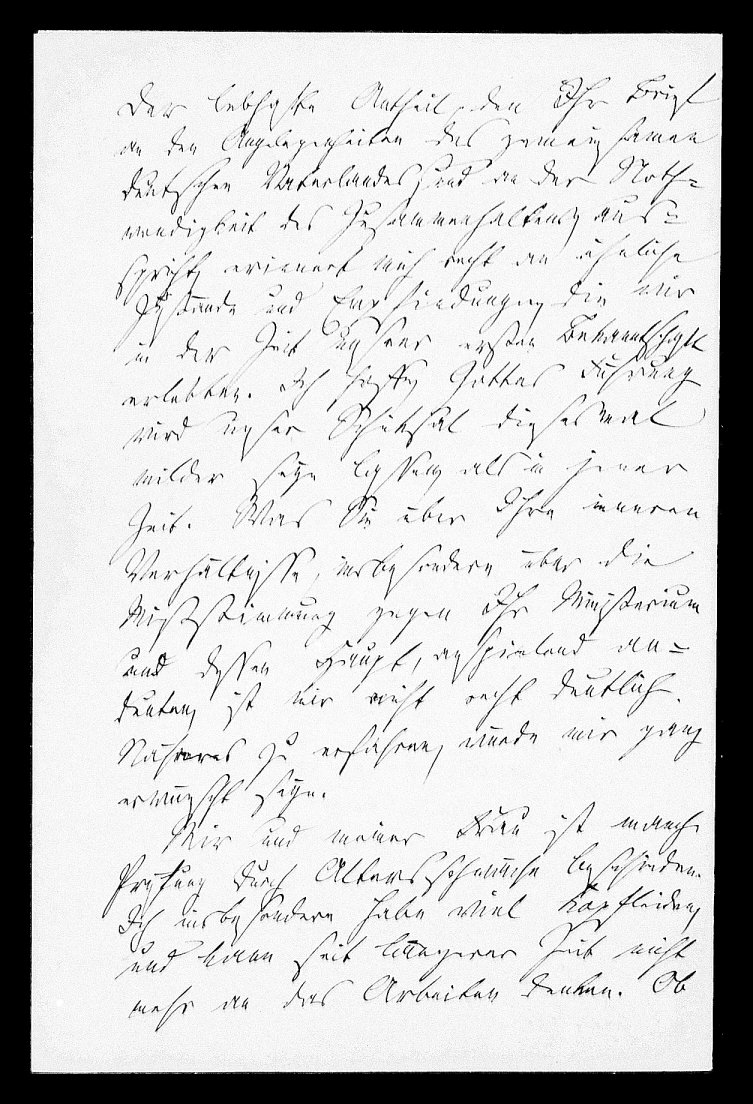 Der lebhafte Antheil, den Ihr Brief
an den Angelegenheiten des gemeinsamen
deutschen Vaterlandes, und an der Noth-
wendigkeit des Zusammenhaltens aus-
spricht, erinnert mich recht an ähnliche
Zustände und Empfindungen, die wir
in der Zeit unsrer ersten Bekanntschaft
erlebten. Ich hoffe, Gottes Führung
wird unser Schicksal diesesmal
milder seyn lassen, als in jener
Zeit. Was Sie über Ihre inneren
Verhältnisse, insbesondere über die
Misstimmung gegen Ihr Ministerium
und dessen Haupt, anspielend an-
deuten, ist mir nicht recht deutlich.
Näheres zu erfahren, würde mir ganz
erwünscht seyn.
Mir und meiner Frau ist manche
Prüfung durch Altersschwäche beschieden.
Ich insbesondere habe viel Kopfleiden,
und kann seit längerer Zeit nicht
mehr an das Arbeiten denken. Ob